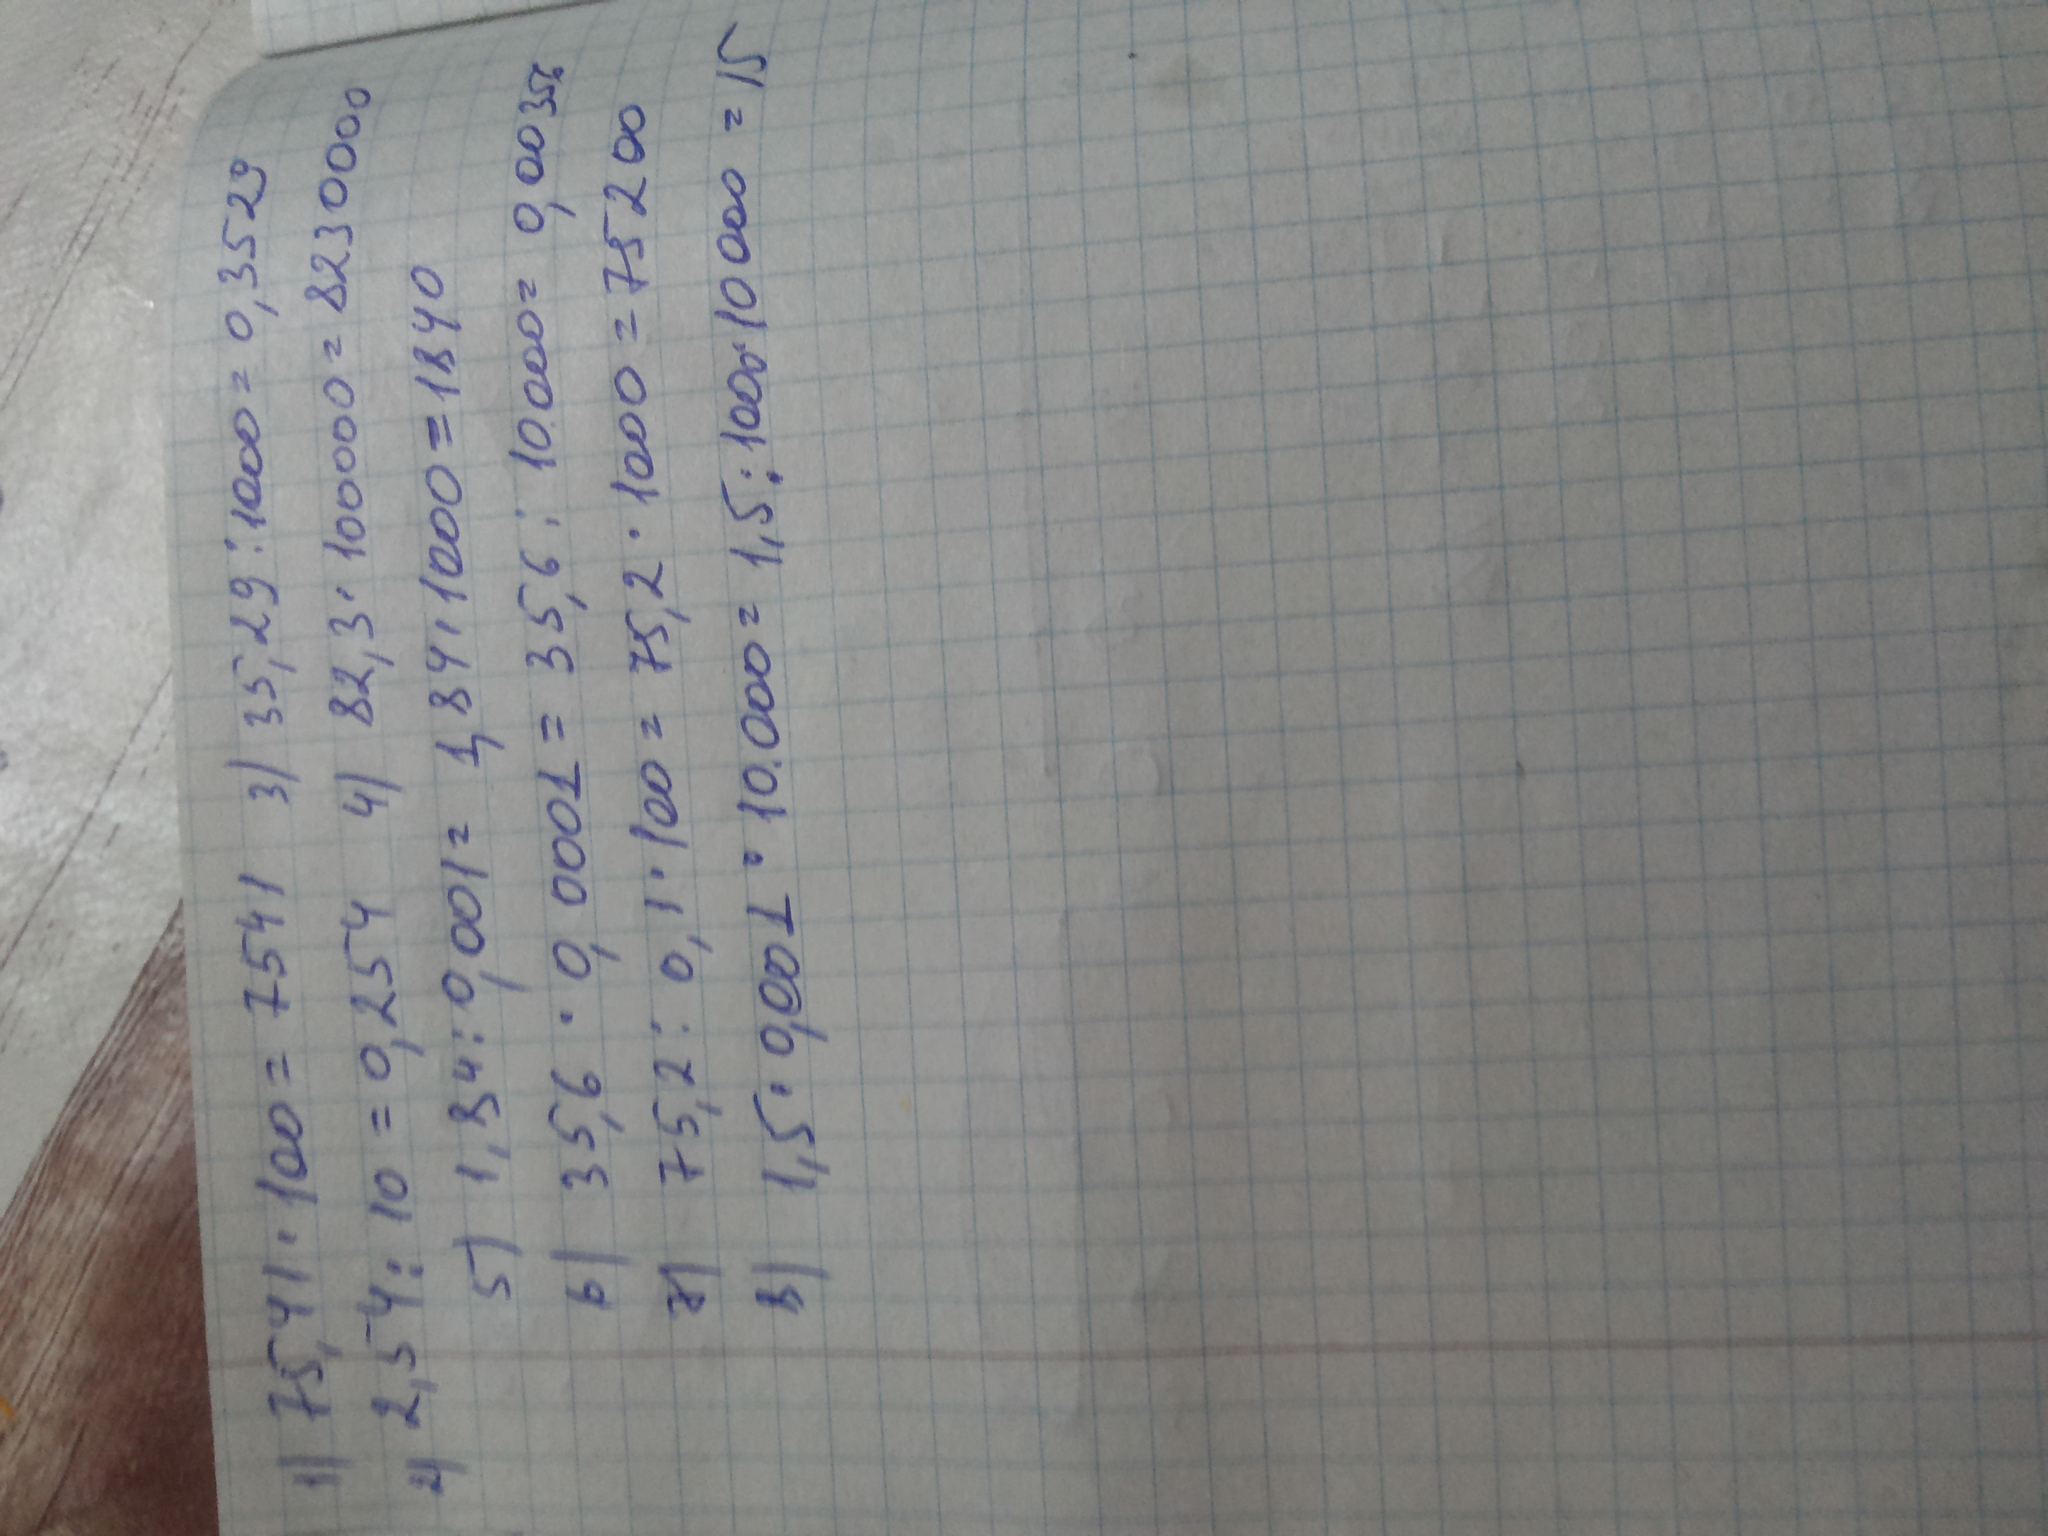 1) 75,41 · 100 = 7541 3) 35,29 : 100 = 0,3529
2) 2,54 : 10 = 0,254 4) 82,3 · 100000 = 8230000
5) 1,84 : 0,001 = 1,84 · 1000 = 1840
6) 35,6 · 0,0001 = 35,6 : 10.000 = 0,00356
7) 75,2 : 0,1 · 100 = 75,2 · 1000 = 75200
8) 1,5 · 0,001 · 10.000 = 1,5 : 1000 · 10000 = 15